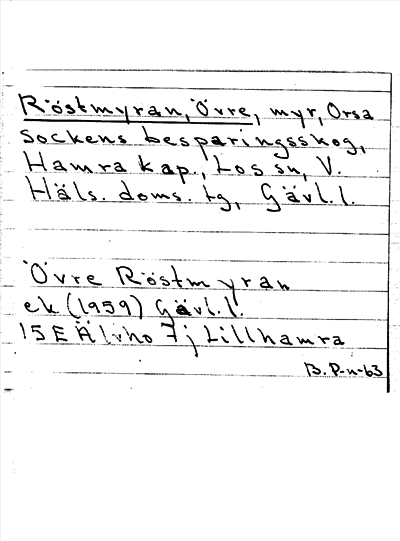 Röstmyran, Övre, myr, Orsa
sockens besparingsskog,
Hamra kap., Los sn, V.
Häls. doms. tg, Gävl. l.
Övre Röstmyran
ek (1959) Gävl. l.
15E Älvho 7j Lillhamra
B. P-n-63